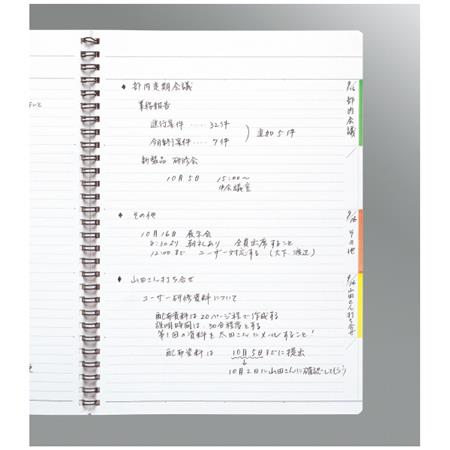 ◆ 部内定期会議
業務報告
進行案件 ‥‥ 32件
今月終了案件 ‥‥ 7件
追加 5件
新製品 研修会
10月5日 15:00〜
中会議室
◆ その他
10月16日 展示会
8:30より 朝礼あり 全員出席すること
12:00まで ユーザー対応する (大下、渡辺)
◆ 山田さん打ち合せ
ユーザー研修資料について
配布資料は20ページ程で作成する
説明時間は、30分程度とする
第1回の資料を太田さんにメールすること!
配布資料は 10月5日までに提出
↓
10月2日に山田さんに確認してもらう
9/16 部内会議
9/16 その他
9/16 山田さん打ち合せ